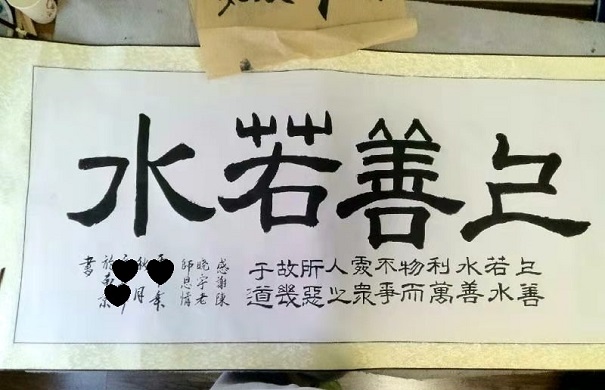 上善若水
上善
若水
水善
利萬
物而
不爭
處眾
人之
所惡
故幾
于道
感謝陳
晓宇老
師恩情
秋 月
於
書